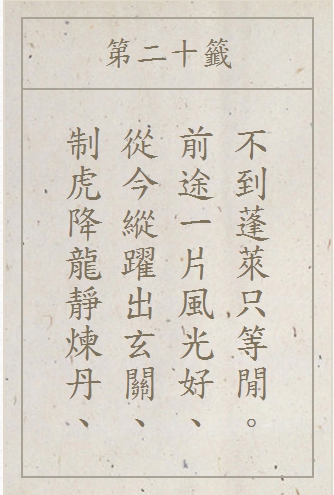 第二十籤
制虎降龍靜煉丹、
從今縱躍出玄關、
前途一片風光好、
不到蓬萊只等閒。